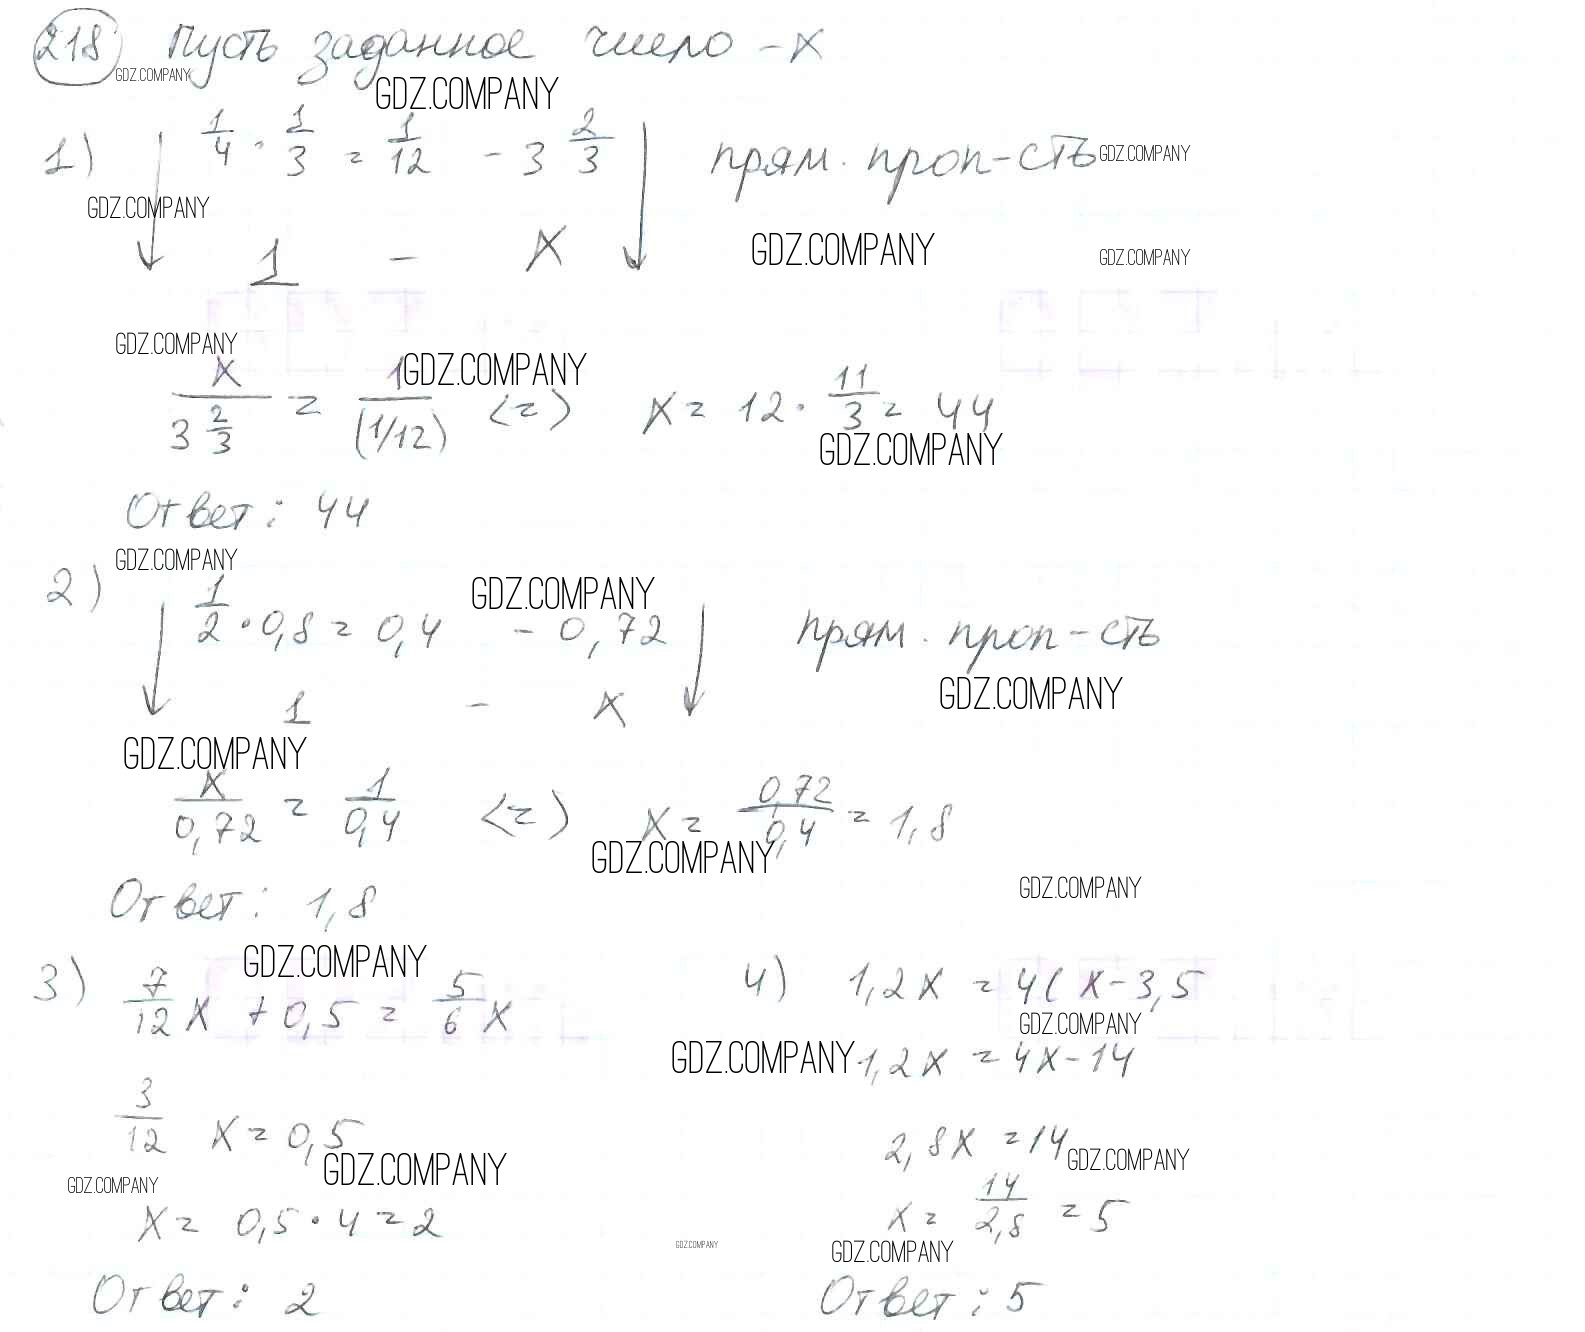 218 Пусть заданное число - x
GDZ.COMPANY
GDZ.COMPANY
1) 1/4 · 1/3 = 1/12 - 3 2/3 прям. проп-сть
GDZ.COMPANY
GDZ.COMPANY
1 - x
GDZ.COMPANY
GDZ.COMPANY
GDZ.COMPANY
GDZ.COMPANY
x / 3 2/3 = 1 / (1/12) <=> x = 12 · 11/3 = 44
GDZ.COMPANY
Ответ: 44
GDZ.COMPANY
GDZ.COMPANY
2) 1/2 · 0,8 = 0,4 - 0,72 прям. проп-сть
GDZ.COMPANY
1 - x
GDZ.COMPANY
x / 0,72 = 1 / 0,4 <=> x = 0,72 / 0,4 = 1,8
GDZ.COMPANY
GDZ.COMPANY
Ответ: 1,8
GDZ.COMPANY
3) 7/12 x + 0,5 = 5/6 x
3/12 x = 0,5
GDZ.COMPANY
GDZ.COMPANY
x = 0,5 · 4 = 2
GDZ.COMPANY
Ответ: 2
4) 1,2x = 4(x - 3,5
GDZ.COMPANY
GDZ.COMPANY
1,2x = 4x - 14
2,8x = 14
GDZ.COMPANY
x = 14 / 2,8 = 5
GDZ.COMPANY
Ответ: 5